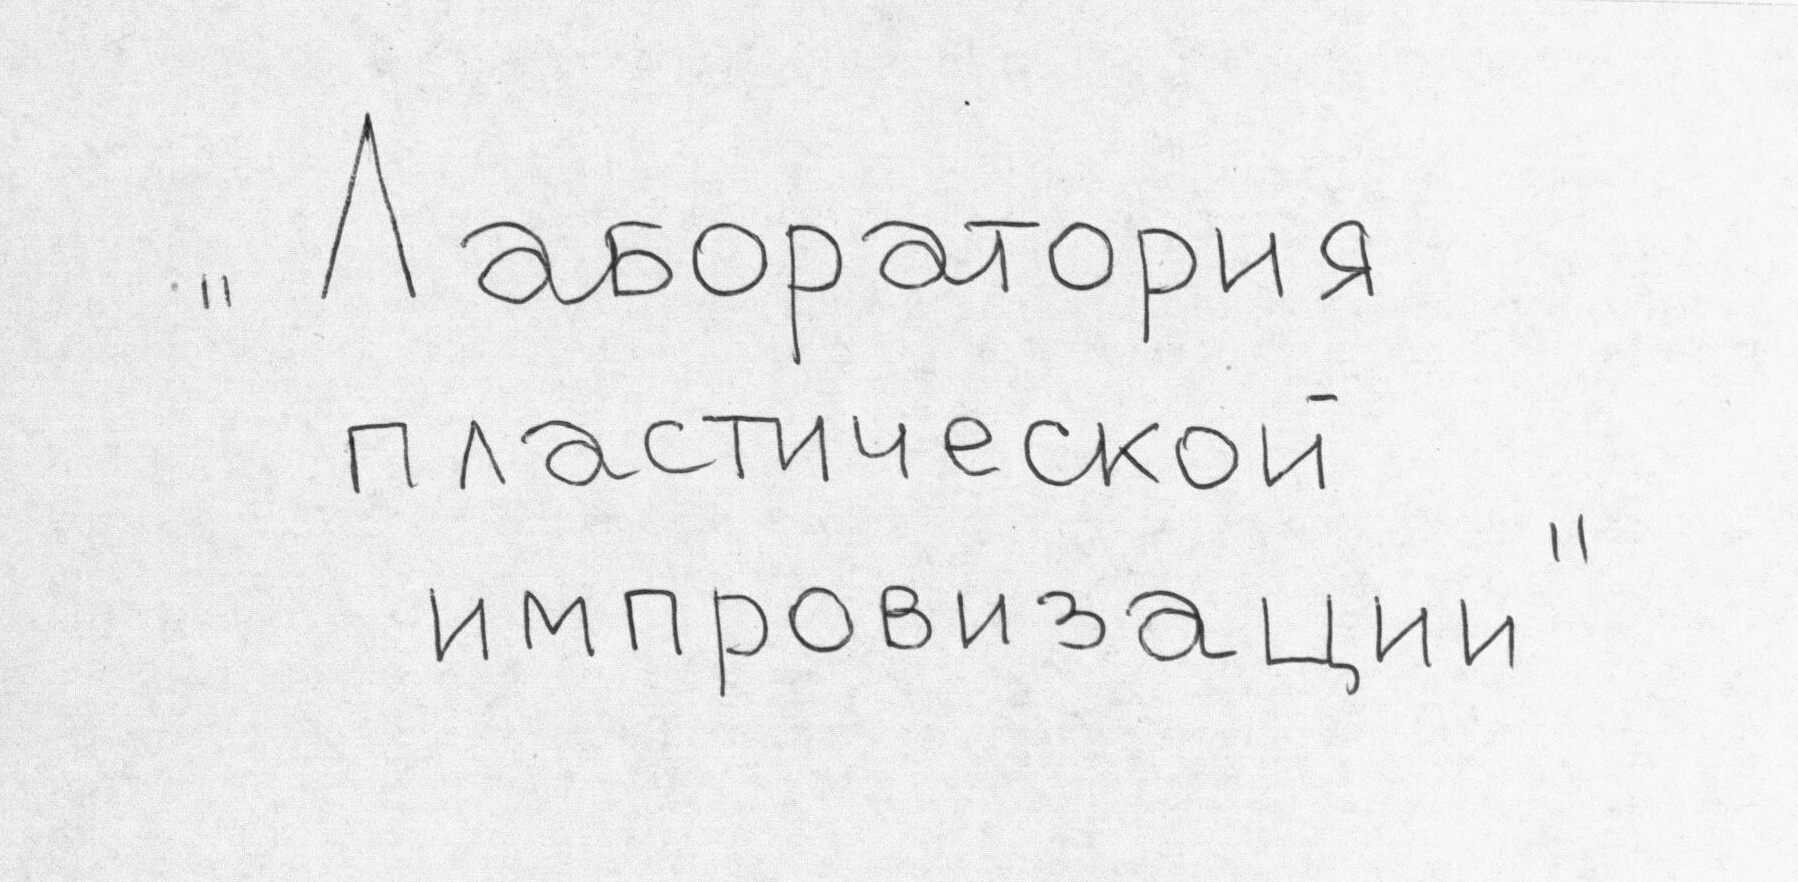 "Лаборатория
пластической
импровизации"